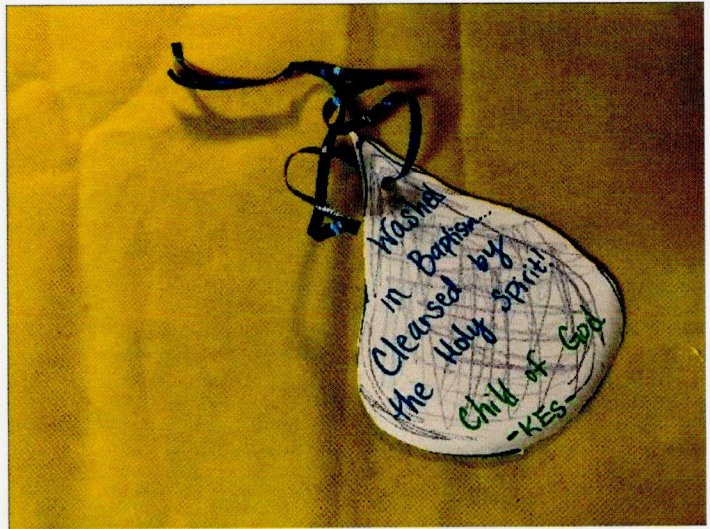 Washed
in Baptism...
Cleansed by
the Holy Spirit!!
Child of God
-KES-